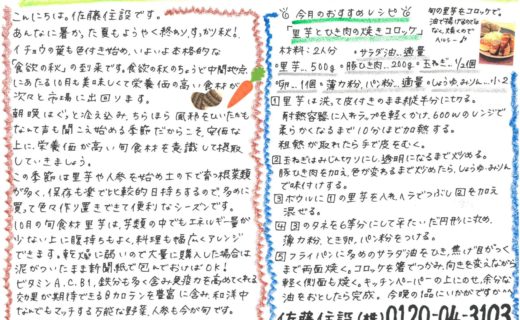 こんにちは。佐藤住設です。
あんなに暑かった夏もようやく終わり、すっかり秋!
イチョウの葉も色付き始め、いよいよ本格的な
「食欲の秋」の到来です。食欲の秋のちょうど中間地点
にあたる10月も美味しくて栄養価の高い食材が
次々と市場に出回ります。
朝晩はぐっと冷え込み、ちらほら風邪をひいたかも
なんて声も聞こえ始める季節だからこそ、安価な
上に、栄養価が高い旬食材を意識して摂取
していきましょう。
この季節は里芋や人参を始め土の下で育つ根菜類
が多く、保存も楽で比較的日持ちするので、多めに
買って色々作り置きできて便利なシーズンです。
10月の旬食材里芋は、芋類の中でもエネルギー量が
少ない上に腹持ちもよく料理も幅広くアレンジ
できます。乾燥に弱いので大量に購入した場合は
泥がついたまま新聞紙で包んでおけばOK!
ビタミンA、C、B1、鉄分も多く含み免疫力を高めてくれる
効果が期待できるβカロテンを豊富に含み、和洋中
なんでもマッチする万能な野菜、人参も今が旬です。
今月のおすすめレシピ
「里芋とひき肉の焼きコロッケ」
旬の里芋をコロッケで。
油で揚げるのではなく、焼くので
ヘルシー♪
材料:2人分 ・サラダ油…適量
・里芋…500g ・豚ひき肉…200g ・玉ねぎ…1/2個
・卵…1個 ・薄力粉、パン粉…適量 ・しょうゆ、みりん…小2
①里芋は洗って皮付きのまま横半分に切る。
耐熱容器に入れラップを軽くかけ、600Wのレンジで
柔らかくなるまで10分ほど加熱する。
粗熱が取れたら手で皮をむく。
②玉ねぎはみじん切りにし、透明になるまで炒める。
豚ひき肉を加え、色が変わるまで炒めたら、しょうゆ・みりん
で味付けする。
③ボウルに①の里芋を入れヘラでつぶし②を加え
混ぜる。
④③のタネを6等分にして平たいだ円形に丸め、
薄力粉、とき卵、パン粉をつける。
⑤フライパンに多めのサラダ油をひき、焦げ目がつく
まで両面焼く。コロッケを箸でつかみ、向きを変えながら
軽く側面も焼く。キッチンペーパーの上にのせ、余分な
油をおとしたら完成。今晩の1品にいかがですか〜
佐藤住設(株) 0120-04-3103